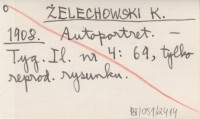 o
ŻELECHOWSKI K.
1908. Autoportret. —
Tyg. Il. nr 4: 69, tylko
reprod. rysunku.